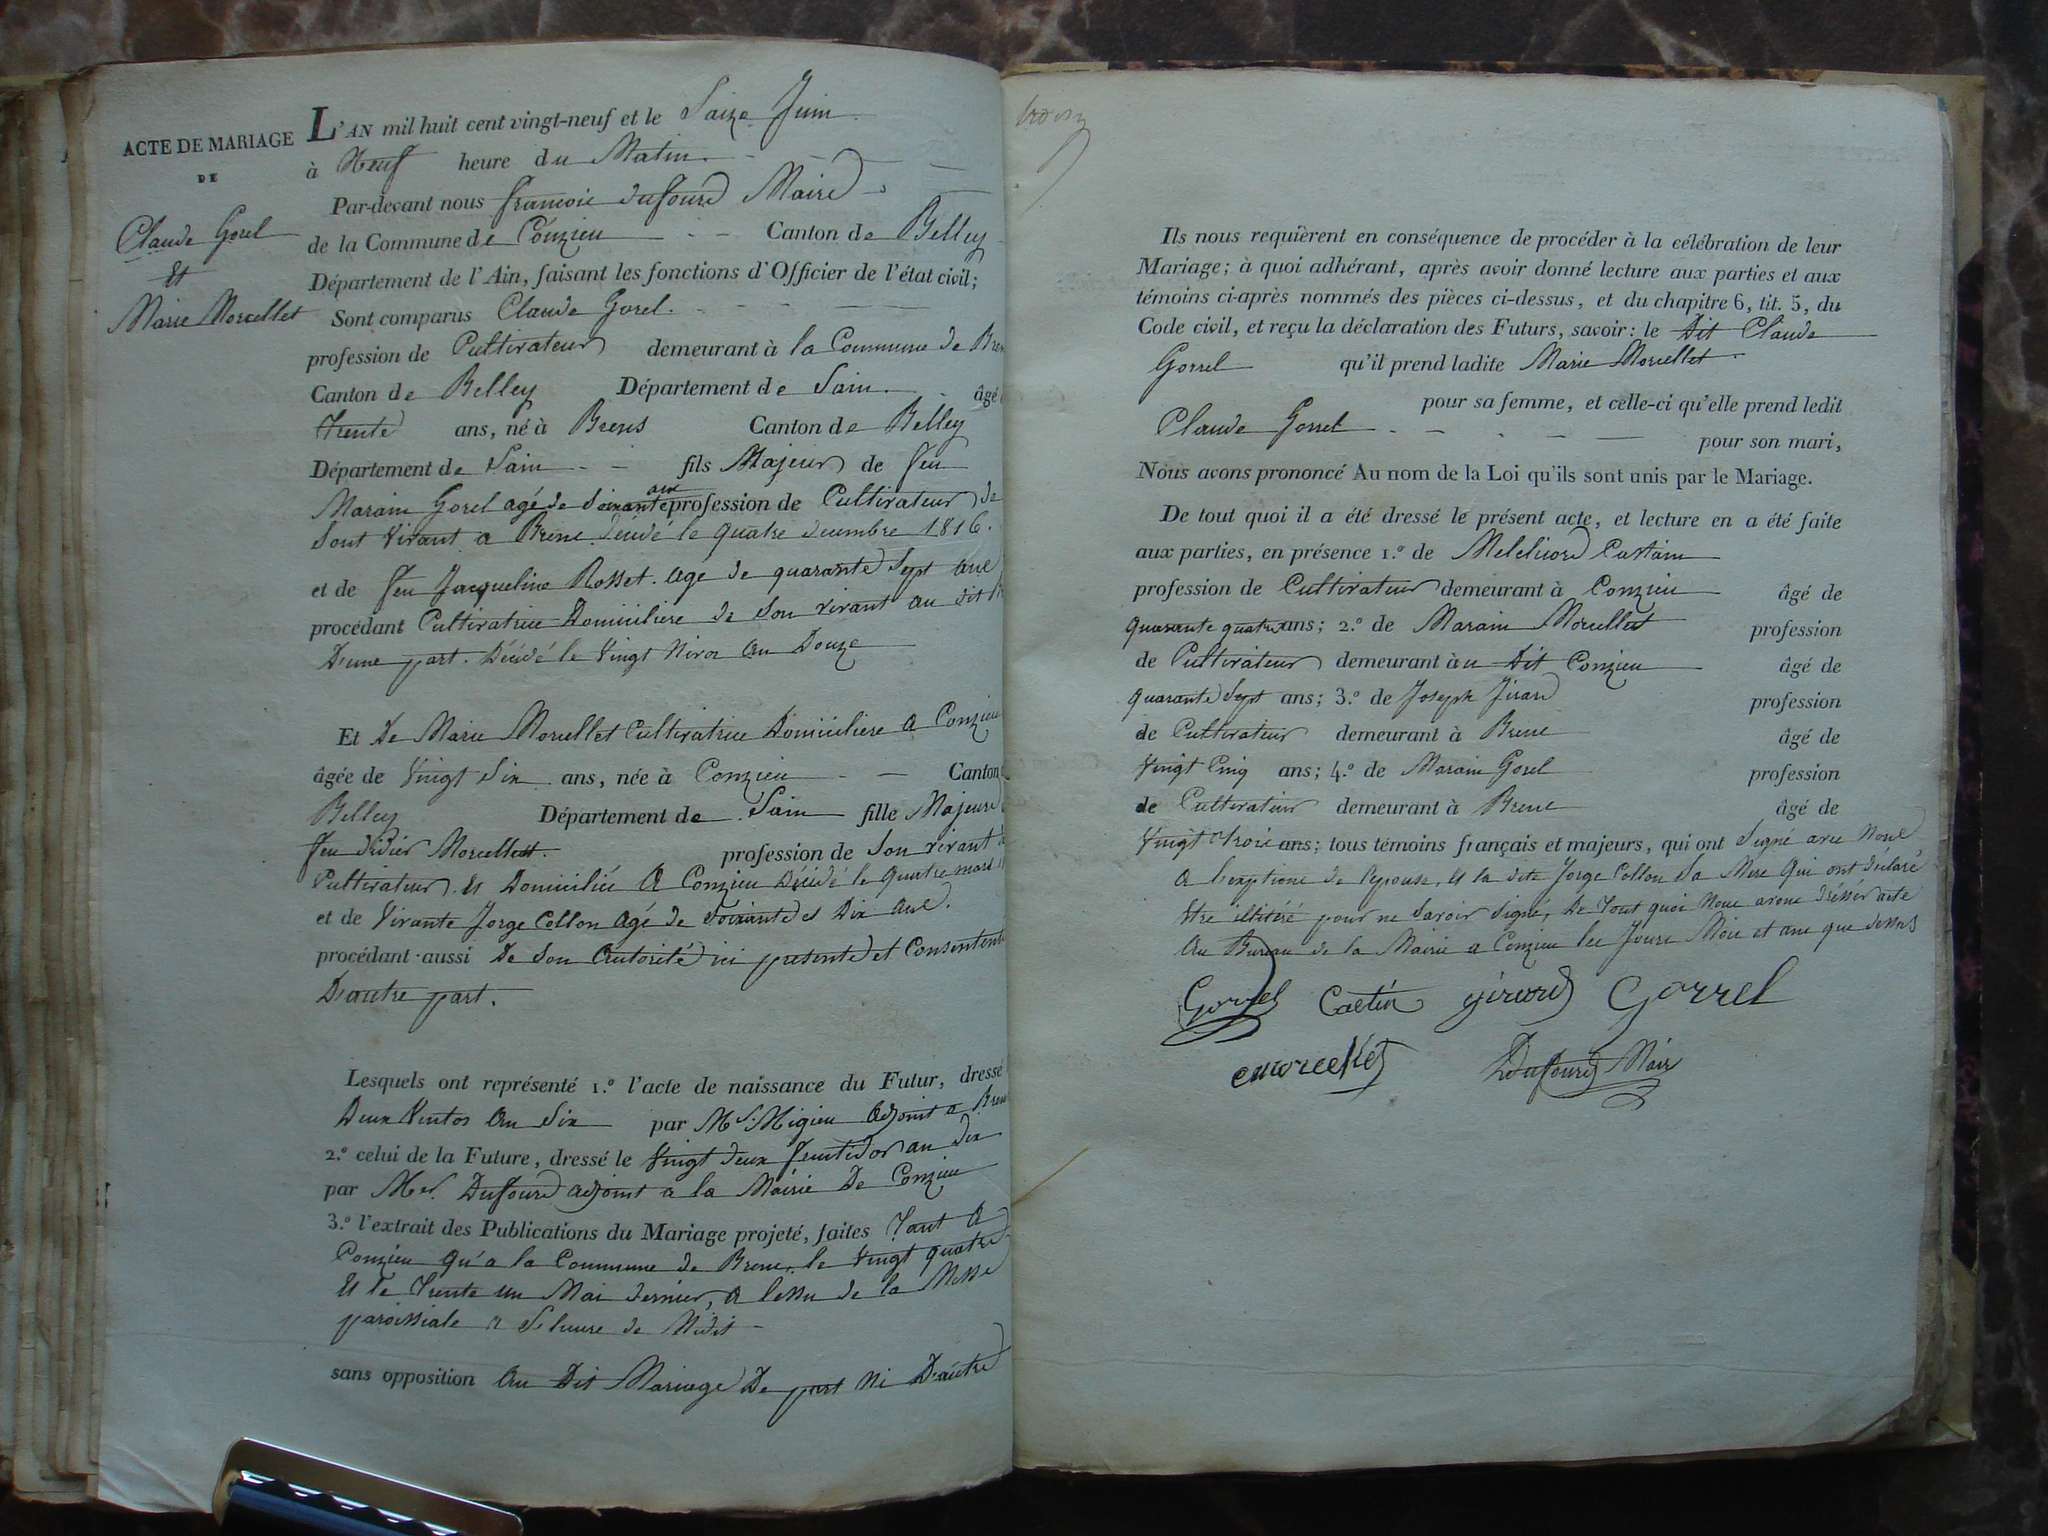 ACTE DE MARIAGE
DE
Claude Gorel
Et
Marie Morcellet
L'AN mil huit cent vingt-neuf et le Saize Juin
à Neuf heure du Matin.
Par-devant nous francois dufourd Maire
de la Commune de Conzieu Canton de Belley
Département de l'Ain, faisant les fonctions d'Officier de l'état civil;
Sont comparus Claude Gorel.
profession de Cultivateur demeurant à la Commune de
Canton de Belley Département de Lain. âgé
trente ans, né à Brens Canton de Belley
Département de Lain fils Majeur de feu
Marain Gorel agé de Soixante ans profession de Cultivateur de
Sont Vivant a Brene décédé le quatre decembre 1816.
et de feu Jacqueline Rosset. agé de quarante Sept ans
procédant Cultivatrice Domiciliere de Son vivant au dit
D'une part. Décédé le Vingt Nivos an Douze
Et De Marie Morcellet Cultivatrice Domiciliere a Conzieu
âgée de Vingt Six ans, née à Conzieu Canton
Belley Département de Lain fille Majeure
feu didier Morcellet. profession de Son vivant
Cultivateur. Et Domicilié a Conzieu Décédé le quatre mars
et de Vivante Jorge Collon agé de Soixante et Dix ans.
procédant aussi De Son Autorité ici presente et Consentente
D'autre part.
Lesquels ont représenté 1.º l'acte de naissance du Futur, dressé
Deux Ventos an Six par Mr. Migieu adjoint a
2.º celui de la Future, dressé le Vingt deux fructidor an dix
par Mer. Dufourd adjoint a la Mairie De Conzieu
3.º l'extrait des Publications du Mariage projeté, faites Tant a
Conzieu qu'a la Commune de Brene. le Vingt quatre
Et le Trente un Mai dernier, a lessu de la Messe
paroissiale a heure de Midit
sans opposition au Dit Mariage De part Ni D'autre
Ils nous requièrent en conséquence de procéder à la célébration de leur
Mariage; à quoi adhérant, après avoir donné lecture aux parties et aux
témoins ci-après nommés des pièces ci-dessus, et du chapitre 6, tit. 5, du
Code civil, et reçu la déclaration des Futurs, savoir: le Dit Claude
Gorrel qu'il prend ladite Marie Morcellet
pour sa femme, et celle-ci qu'elle prend ledit
Claude Gorrel pour son mari,
Nous avons prononcé Au nom de la Loi qu'ils sont unis par le Mariage.
De tout quoi il a été dressé le présent acte, et lecture en a été faite
aux parties, en présence 1.º de Melchiord Castain
profession de Cultivateur demeurant à Conzieu âgé de
quarante quatre ans; 2.º de Marain Morcellet profession
de Cultivateur demeurant au Dit Conzieu âgé de
quarante Sept ans; 3.º de Joseph Jirard profession
de Cultivateur demeurant à Brene âgé de
Vingt Cinq ans; 4.º de Marain Gorel profession
de Cultivateur demeurant à Brene âgé de
Vingt Trois ans; tous témoins français et majeurs, qui ont Signé avec Nous
a lexeptione de lepouse, Et la dite Jorge Collon Sa Mere Qui ont déclaré
Etre illitéré pour ne Savoir Signé, De Tout quoi Nous avons dressér acte
au Bureau de la Mairie a Conzieu les Jours Mois et ans que dessus
Gorrel Castin girard Gorrel
morcellet Dufourd Mair